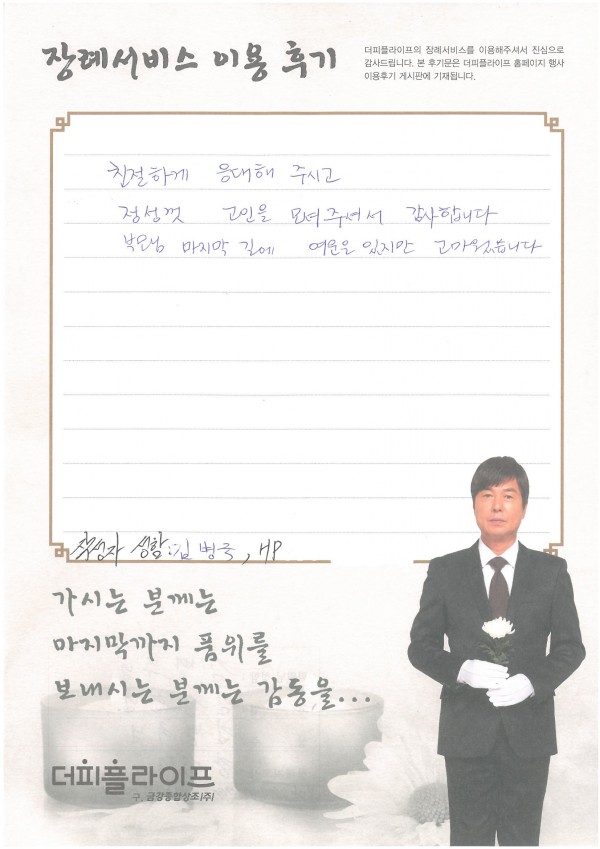 장례서비스 이용 후기
더피플라이프의 장례서비스를 이용해주셔서 진심으로
감사드립니다. 본 후기문은 더피플라이프 홈페이지 행사
이용후기 게시판에 기재됩니다.
친절하게 응대해 주시고
정성껏 고인을 모셔주셔서 감사합니다
부모님 마지막 길에 여운은 있지만 고마웠습니다
작성자 성함 : 김병국, HP
가시는 분께는
마지막까지 품위를
보내시는 분께는 감동을...
더피플라이프
구. 금강종합상조(주)